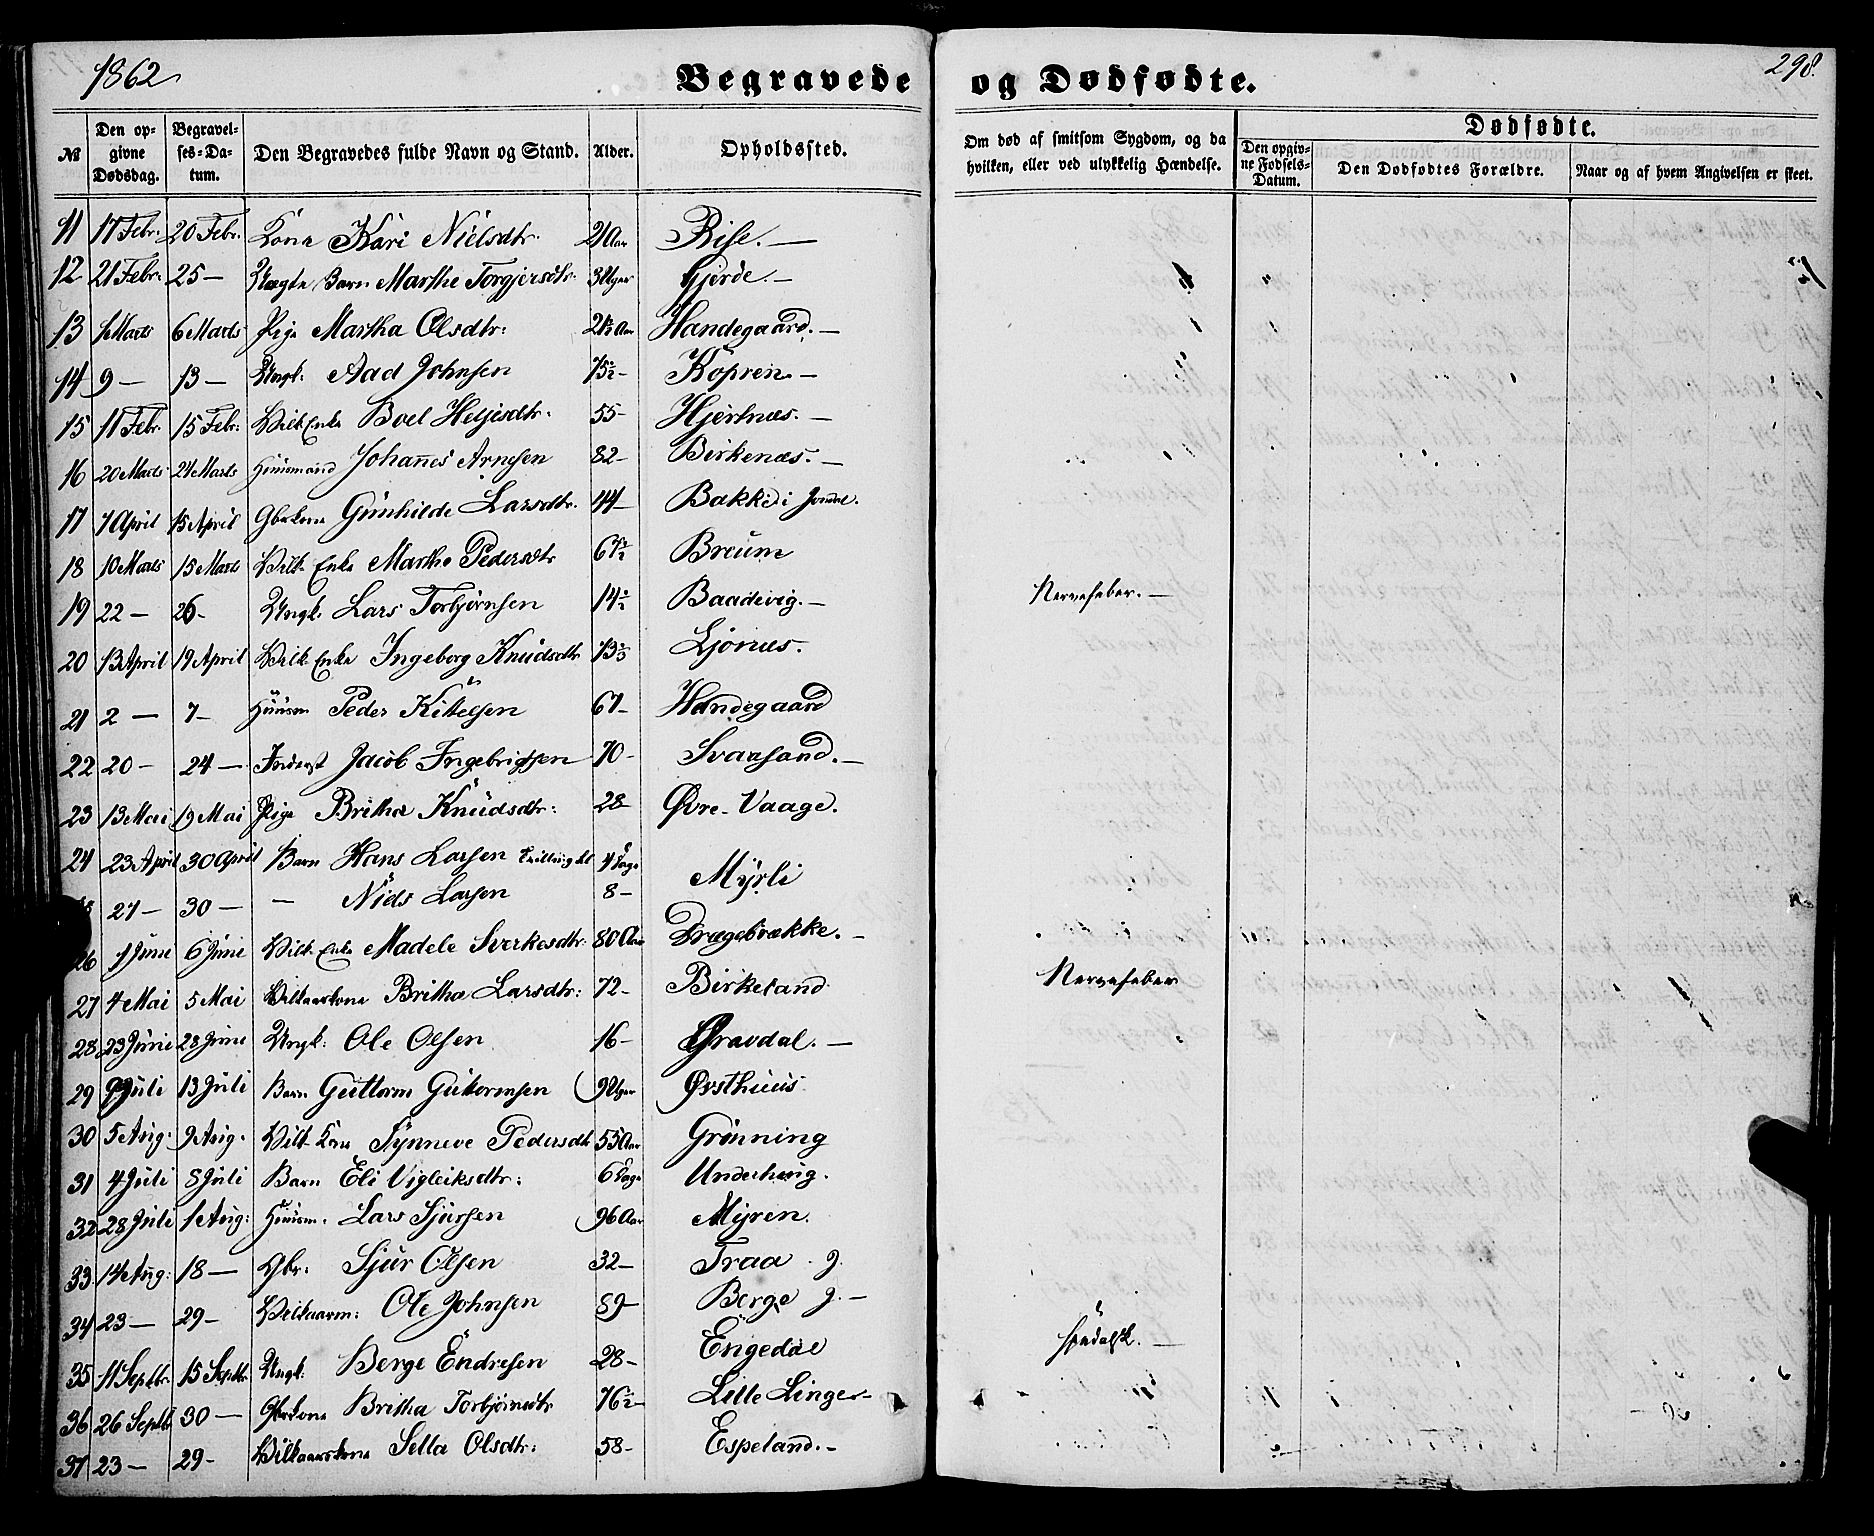 1862
Begravede og Dødfødte.
298.
№
Den opgivne Dødsdag.
Begravelses-Datum.
Den Begravedes fulde Navn og Stand.
Alder.
Opholdssted.
Om død af smitsom Sygdom, og da hvilken, eller ved ulykkelig Hændelse.
Dødfødte.
Den opgivne Fødsels-Datum.
Den Dødfødtes Forældre.
Naar og af hvem Angivelsen er skeet.
11 17 Febr: 20 Febr. Kone Kari Nielsdtr. 21 Aar Rise. —
12 21 Febr: 25 — Uægte Barn Marthe Torgjersdtr. 3 Uger Gjerde. —
13 1 Marts 6 Marts Pige Martha Olsdtr: 21½ Aar Handegaard. —
14 9 — 13 — Ungk: Aad Johnsen Kopren. —
15 11 Febr. 15 Febr: Vilk Enke Boel Heljesdtr. 55 — Hjertnæs. —
16 20 Marts 24 Marts Huusmand Johannes Arnesen 82 — Birkenæs. —
17 7 April 15 April Gbrkone Gunhilde Larsdtr. 44 — Bakke i Jondal.
18 10 Marts 15 Marts Vilk Enke Martha Pedersdtr Breum
19 22 — 26 — Ungk. Lars Torbjørnsen 14½ Baadevig. — Nervefeber. —
20 13 April 19 April Vilk Enke Ingeborg Knudsdtr Ljonæs.
21 2 — 7 — Huusm Peder Kittelsen 67 — Handegaard
22 20 — 24 — Inderst Jacob Ingebrigtsen 70 — Svaasand. —
23 13 Mai 19 Mai Pige Britha Knudsdtr: 28 Øvre-Vaage.
24 23 April 30 April Barn Hans Larsen 4 Dage Myrli
27 — 30 — — Niels Larsen 8 —
26 1 Juni 6 Juni Vilk. Enke Madele Sverkesdtr: 80 Aar Drægebrække. —
27 4 Mai 5 Mai Vilkaarkone Britha Larsdtr: 72 — Birkeland Nervefeber
28 23 Juni 28 Juni Ungk: Ole Olsen 16 — Gravdal. —
29 9 Juli 13 Juli Barn Guttorm Guttormsen 9 Uger Østhuus
30 5 Aug: 9 Aug. Vilk Kone Synneve Pedersdtr 55 Aar Grønning
31 4 Juli 8 Juli Barn Eli Vigleiksdtr: 6 Dage Underhaug.
32 28 Juli 1 Aug: Huusm. Lars Sjursen 96 Aar Myren.
33 14 Aug: 18 — Gbr: Sjur Olsen 32 — Traa g.
34 23 — 29 — Vilkaarm: Ole Johnsen 89 — Berge g. —
35 11 Septbr. 15 Septbr. Ungk: Berge Endresen 28 — Engedal Spedalsk. —
36 26 Septbr 30 — Gbrkone Britha Torbjørnsdtr 76½ — Lille Linge —
37 23 — 29 — Vilkaarskone Sella Olsdtr: 58 — Espeland. —